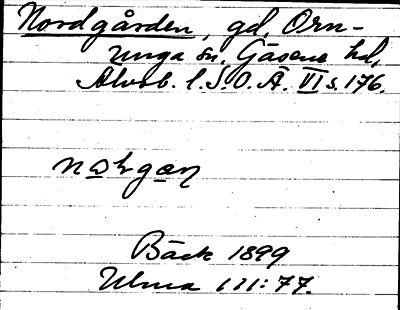 Nordgården, gd, Orn-
unga sn, Gäsene hd,
Älvsb. l. S.O.Ä. VI s. 176.
Bäck 1899
Ulma 111:77.